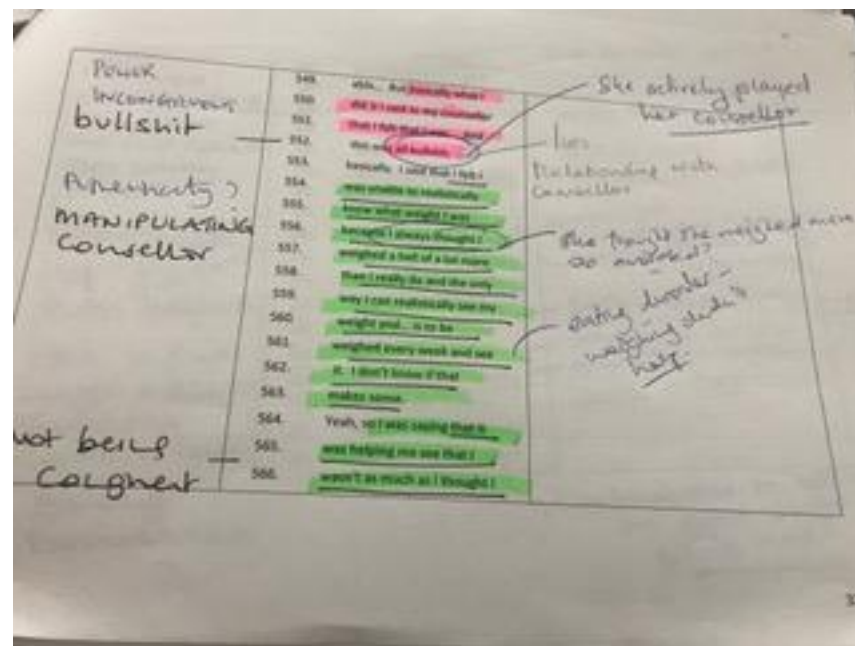 POWER
INCONGRUENUS
bullshit
MANIPULATING
Cousellor
not being
Congnert
549. This... But basically what I
550. did is I said to my counsellor
551. that I felt that I was... and
552. this was all bullshit,
553. basically. I said that I felt I
554. was unable to realistically
555. know what weight I was
556. because I always thought I
557. weighed a hell of a lot more
558. than I really do and the only
559. way I can realistically see my
560. weight and... is to be
561. weighed every week and see
562. it. I don't know if that
563. makes some.
564. Yeah, so I was saying that it
565. was helping me see that I
566. wasn't as much as I thought I
She actively played
her counsellor
lies
Relationship with
Counsellor
She thought she weighed more
so avoided?
eating disorder -
weighing didn't
help